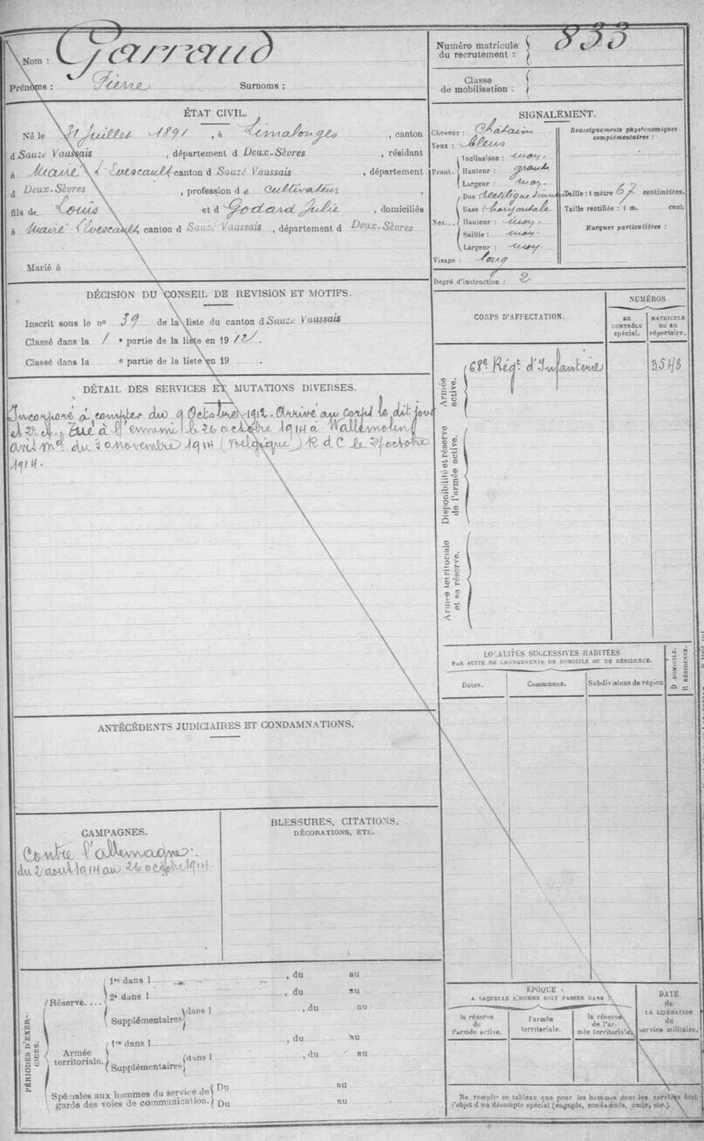 Nom : Garraud
Prénoms : Pierre Surnoms :
Numéro matricule du recrutement : 833
Classe de mobilisation :
ÉTAT CIVIL.
Né le 31 Juillet 1891, à Limalonges, canton
d Sauzé Vaussais, département d Deux-Sèvres, résidant
à Mairé L'Evescault canton d Sauzé Vaussais, département
d Deux-Sèvres, profession de cultivateur,
fils de Louis et d Godard Julie, domiciliés
à Mairé L'Evescault, canton d Sauzé Vaussais, département d Deux-Sèvres
Marié à
SIGNALEMENT.
Cheveux : Châtain
Yeux : bleus
Front. Inclinaison : moy.
Hauteur : grande
Largeur : moy.
Nez. Dos rectiligne
Base : horizontale
Hauteur : moy.
Saillie : moy.
Largeur : moy
Visage : long
Renseignements physionomiques complémentaires :
Taille : 1 mètre 67 centimètres.
Taille rectifiée : 1 m. cent.
Marques particulières :
Degré d'instruction : 2
DÉCISION DU CONSEIL DE REVISION ET MOTIFS.
Inscrit sous le n° 39 de la liste du canton d Sauzé Vaussais
Classé dans la 1e partie de la liste en 1912.
Classé dans la e partie de la liste en 19
CORPS D'AFFECTATION.
NUMÉROS
au contrôle spécial.
matricule ou au répertoire.
Armée active.
68e Régt d'Infanterie 3548
Disponibilité et réserve de l'armée active.
Armée territoriale et sa réserve.
DÉTAIL DES SERVICES ET MUTATIONS DIVERSES.
Incorporé à compter du 9 Octobre 1912. Arrivé au corps le dit jour
et 2e cl. Tué à l'ennemi le 26 octobre 1914 à Wallemolen
avis ml du 30 novembre 1914 (Belgique) R d C le 27 octobre
1914.
LOCALITÉS SUCCESSIVES HABITÉES
PAR SUITE DE CHANGEMENTS DE DOMICILE OU DE RÉSIDENCE.
Dates. Communes. Subdivisions de région D DOMICILE. R RÉSIDENCE.
ANTÉCÉDENTS JUDICIAIRES ET CONDAMNATIONS.
CAMPAGNES.
Contre l'allemagne :
du 2 aout 1914 au 26 octobre 1914
BLESSURES, CITATIONS,
DÉCORATIONS, ETC.
PÉRIODES D'EXERCICES.
Réserve.... 1re dans l , du au
2e dans l , du au
Supplémentaires dans l , du au
Armée territoriale. 1re dans l , du au
Supplémentaires dans l , du au
Spéciales aux hommes du service de garde des voies de communication. Du au
Du au
ÉPOQUE
A LAQUELLE L'HOMME DOIT PASSER DANS :
la réserve de l'armée active.
l'armée territoriale.
la réserve de l'armée territoriale.
DATE de LA LIBÉRATION du service militaire.
Ne remplir ce tableau que pour les hommes dont les services font
l'objet d'un décompte spécial (engagés, condamnés, omis, etc.)